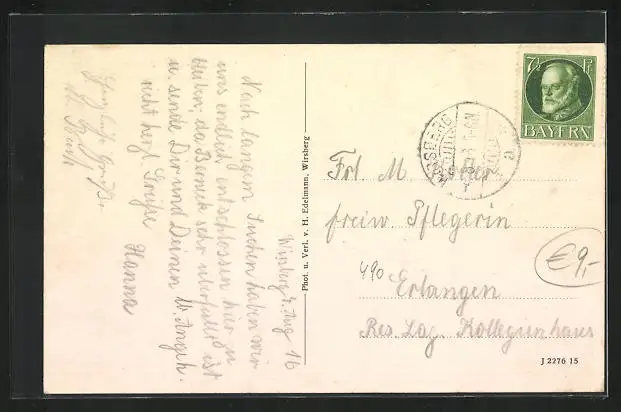 Wirsberg 4. Aug 16
Nach langem Suchen haben wir
uns endlich entschlossen hier zu
bleiben, da Berneck sehr überfüllt ist
u. sende Dir und Deinen lb. Angeh.
recht herzl. Grüße
Hanna
Phot. u. Verl. v. H. Edelmann, Wirsberg
7½ Pf
BAYERN
WIRSBERG
Frl M.
freiw. Pflegerin
490
Erlangen
Res. Laz. Kollegienhaus
€ 9,-
J 2276 15